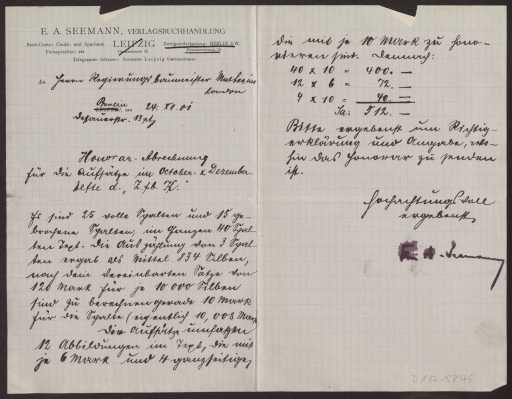 E. A. SEEMANN, VERLAGSBUCHHANDLUNG
LEIPZIG
An Herrn Regierungsbaumeister Muthesius
London
Berlin 24. XI. 01
Dessauerstr.
Honorar-Abrechnung
für die Aufsätze im October- & Dezember-
hefte d. „Z. f. b. K."
Es sind 25 volle Spalten und 15 ge-
brochene Spalten, im Ganzen 40 Spal-
ten Text. Die Auszählung von 3 Spal-
ten ergab als Mittel 834 Silben,
nach dem vereinbarten Satze von
120 Mark für je 10 000 Silben
sind zu berechnen gerade 10 Mark
für die Spalte (eigentlich 10,008 Mark)
Die Aufsätze umfassen
12 Abbildungen im Text, die mit
je 6 Mark und 4 ganzseitige,
die mit je 10 Mark zu hono-
rieren sind. Demnach:
40 x 10 = 400. —
12 x 6 = 72. —
4 x 10 = 40. —
Sa: 512. —
Bitte ergebenst um Richtig-
erklärung und Angabe, wo-
hin das Honorar zu senden
ist.
Hochachtungsvoll
ergebenst
Seemann